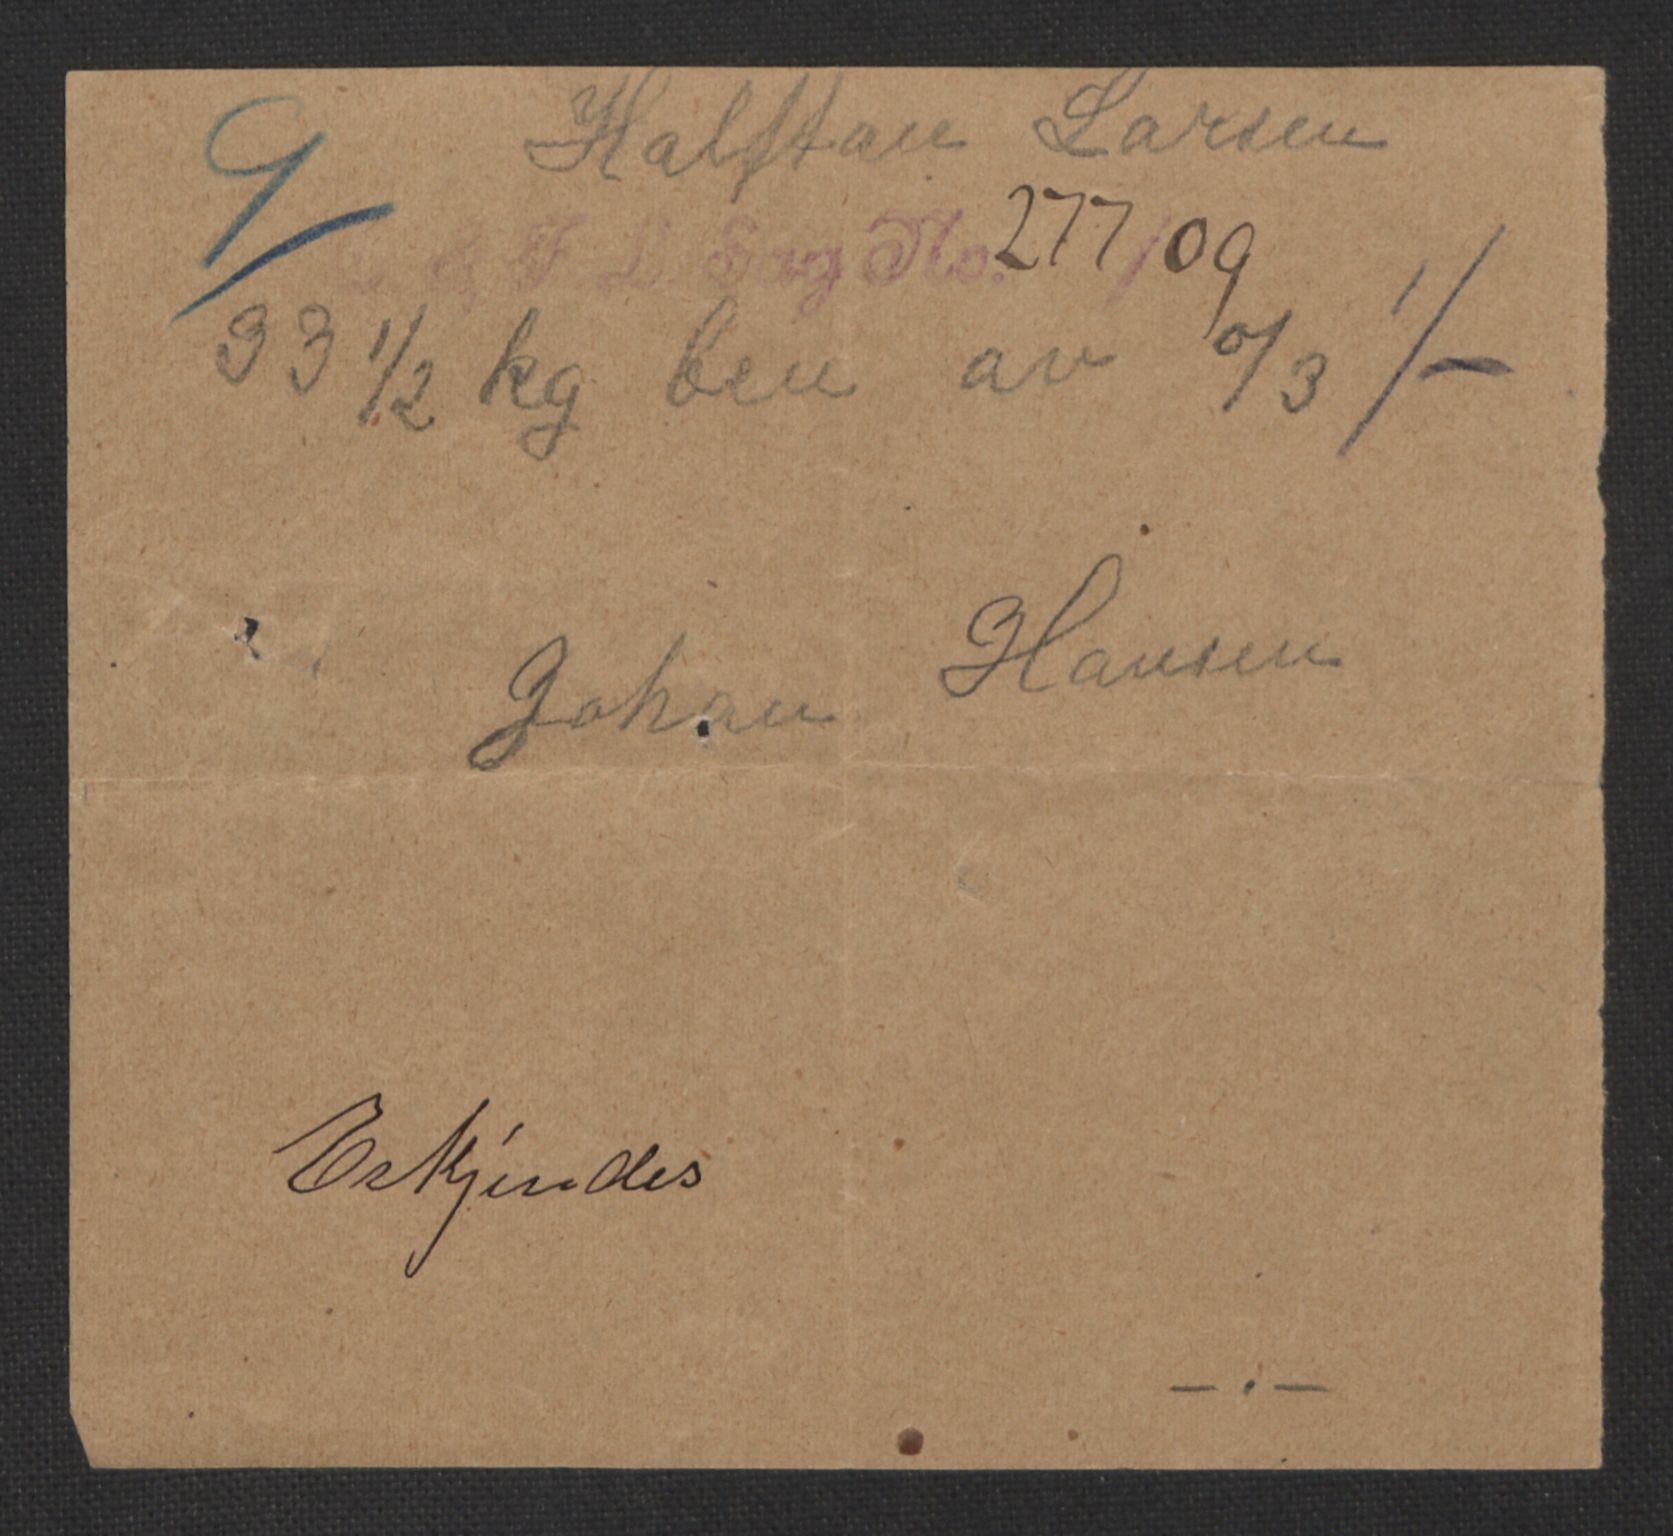 9
Halftan Larsen
& F. L. Sag No. 277/09
33 1/2 kg ben av
Johan Hansen
Erkjendes
— . —